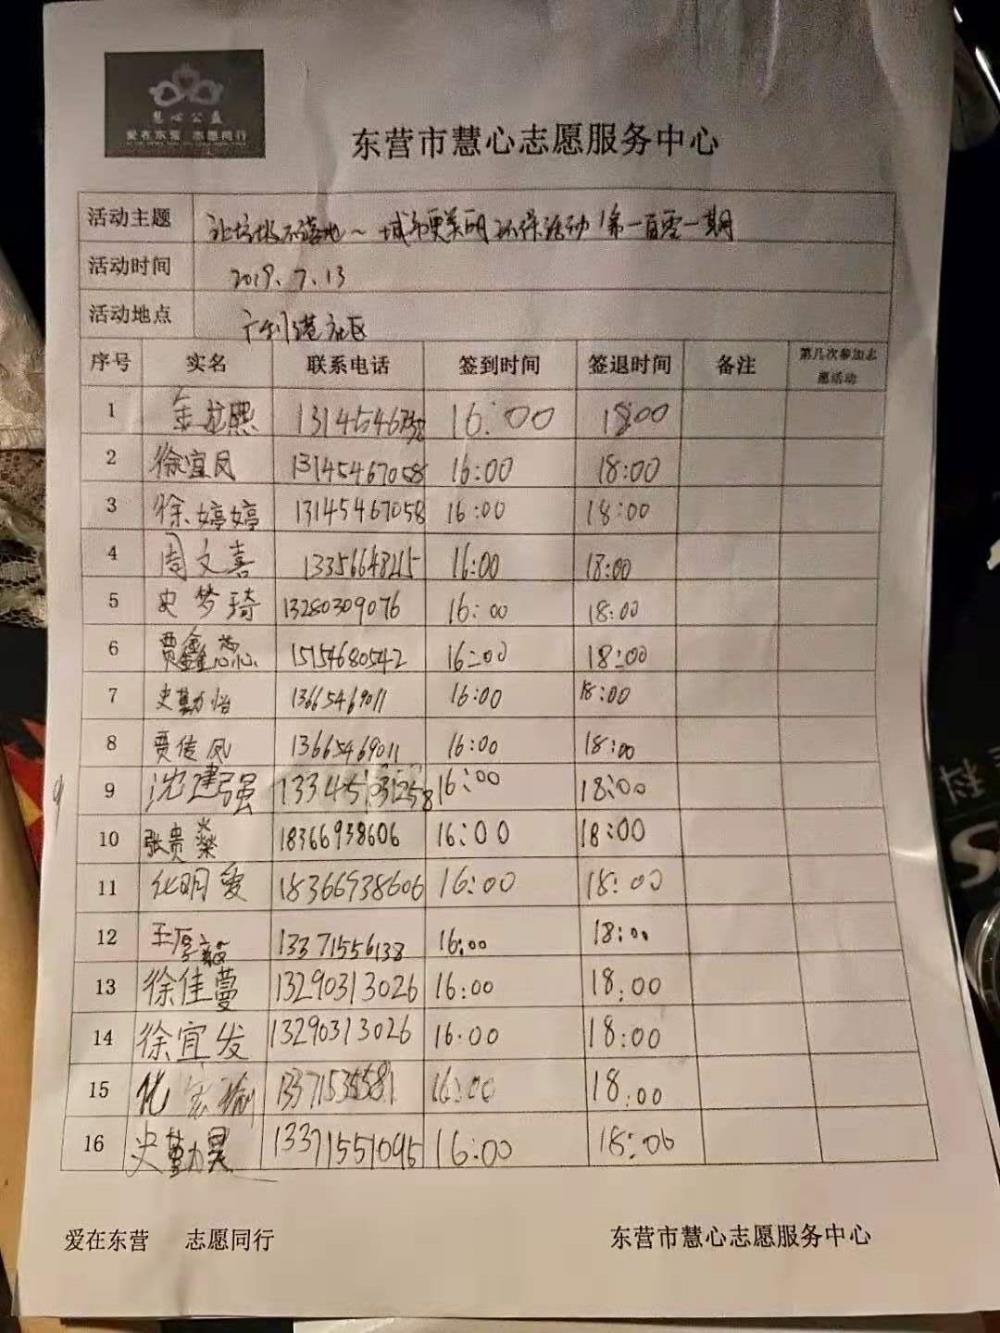 慧心公益
爱在东营 志愿同行
东营市慧心志愿服务中心
活动主题 让垃圾不落地~城市更美丽环保活动第一百零一期
活动时间 2019.7.13
活动地点 广利港社区
序号 实名 联系电话 签到时间 签退时间 备注 第几次参加志愿活动
1 金龙熙 16:00 18:00
2 徐宜凤 13145467058 16:00 18:00
3 徐婷婷 13145467058 16:00 18:00
4 周文喜 16:00 18:00
5 史梦琦 13280309076 16:00 18:00
6 贾鑫蕊 15154680542 16:00 18:00
7 史勤怡 13665469011 16:00 18:00
8 贾传凤 13665469011 16:00 18:00
9 沈建强 16:00 18:00
10 张贵燊 18366938606 16:00 18:00
11 化明爱 18366938606 16:00 18:00
12 王厚毅 13371556138 16:00 18:00
13 徐佳蔓 13290313026 16:00 18:00
14 徐宜发 13290313026 16:00 18:00
15 化宏瑜 16:00 18:00
16 史勤昊 13371551095 16:00 18:00
爱在东营 志愿同行 东营市慧心志愿服务中心